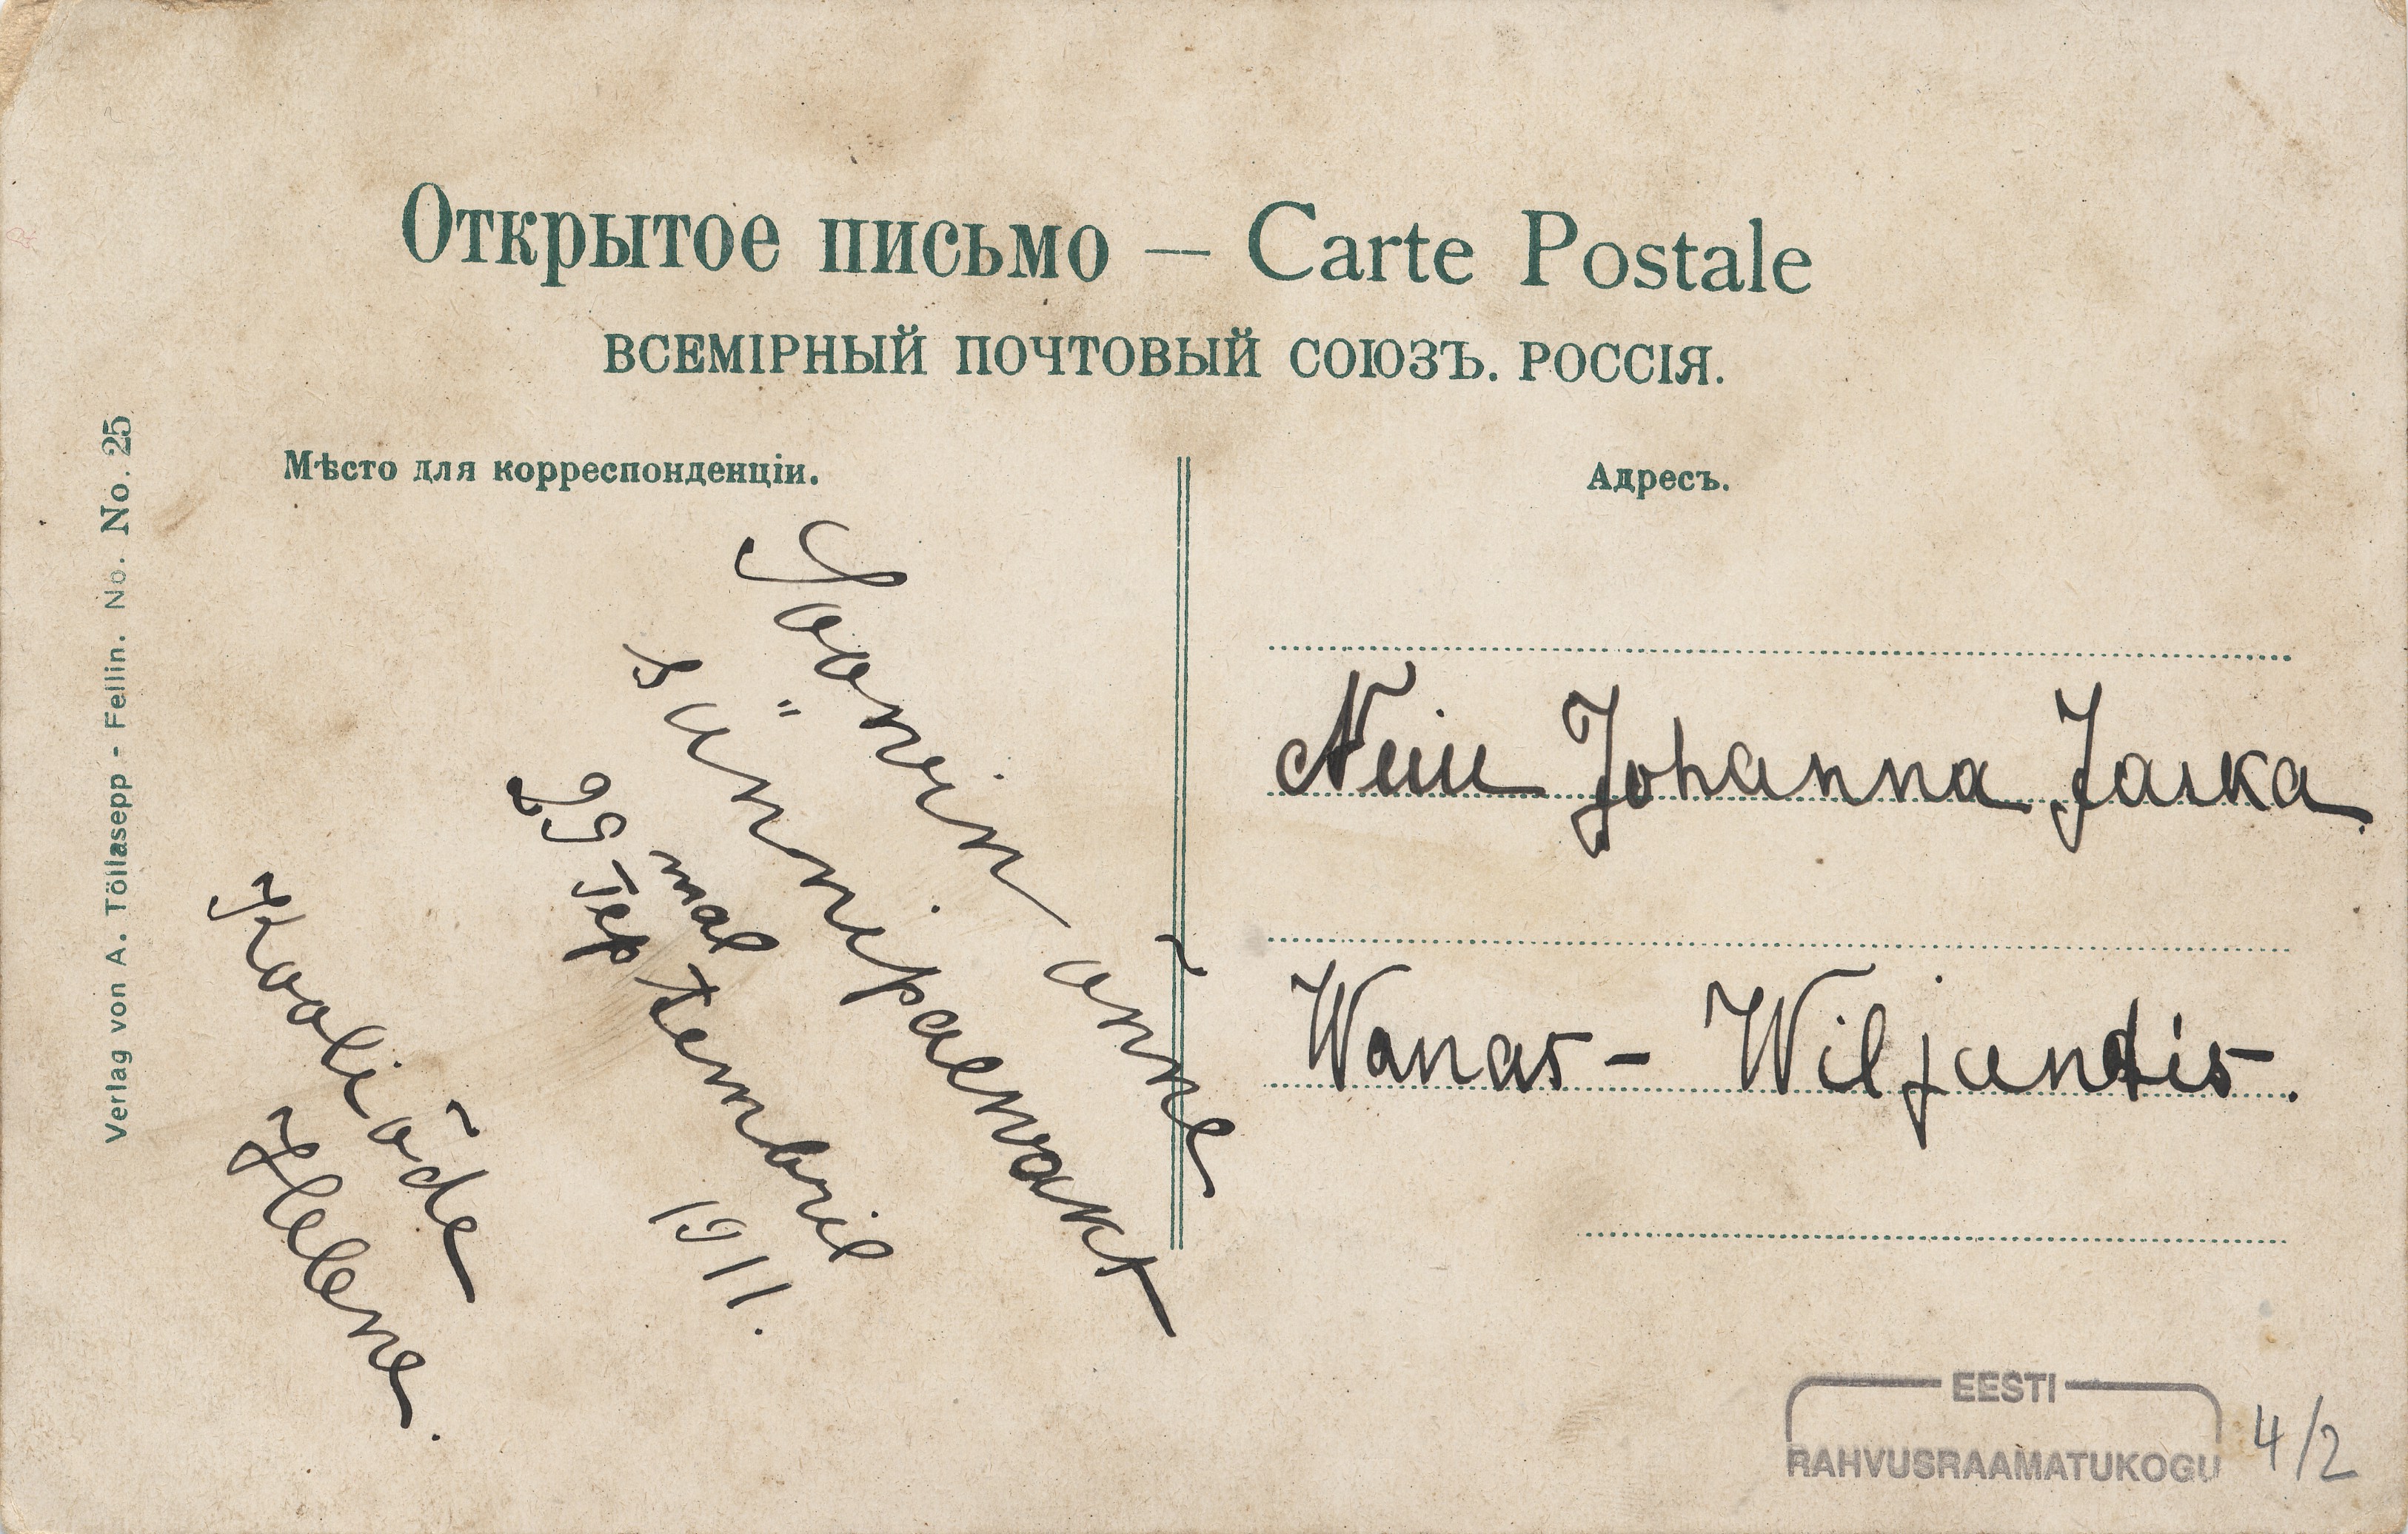 Открытое письмо — Carte Postale
ВСЕМІРНЫЙ ПОЧТОВЫЙ СОЮЗЪ. РОССІЯ.
Мѣсто для корреспонденціи.
Адресъ.
Verlag von A. Töllasepp - Fellin. No. No. 25
Soovin õnne
sünnipaevaks
25 mal
September
1911.
Kooliõde
Helene.
Neiu Johanna Jaska
Wanas - Wiljandis.
EESTI
RAHVUSRAAMATUKOGU
4/2